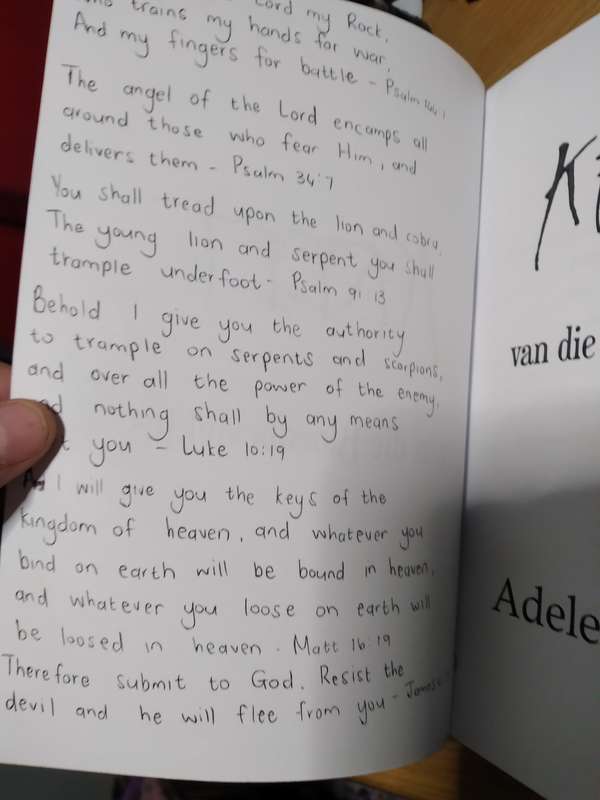 trains my hands for war,
And my fingers for battle - Psalm 144:1
The angel of the Lord encamps all
around those who fear Him, and
delivers them - Psalm 34:7
You shall tread upon the lion and cobra,
The young lion and serpent you shall
trample underfoot - Psalm 91:13
Behold I give you the authority
to trample on serpents and scorpions,
and over all the power of the enemy,
nothing shall by any means
you - Luke 10:19
I will give you the keys of the
kingdom of heaven, and whatever you
bind on earth will be bound in heaven,
and whatever you loose on earth will
be loosed in heaven. Matt 16:19
Therefore submit to God. Resist the
devil and he will flee from you - James
van die
Adele